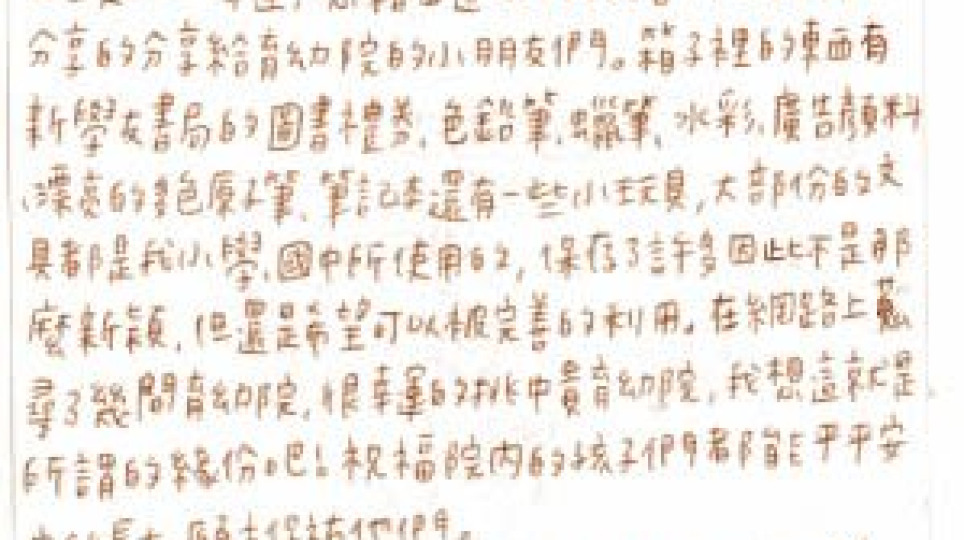 分享的分享給育幼院的小朋友們。箱子裡的東西有
新學友書局的圖書禮券、色鉛筆、蠟筆、水彩、廣告顏料
、漂亮的多色原子筆、筆記本還有一些小玩具,大部份的文
具都是我小學、國中所使用的,保存了許多因此不是那
麼新穎,但還是希望可以被完善的利用。在網路上
尋了幾間育幼院,很幸運的挑中貴育幼院,我想這就是
所謂的緣份吧!祝福院內的孩子們都能平平安